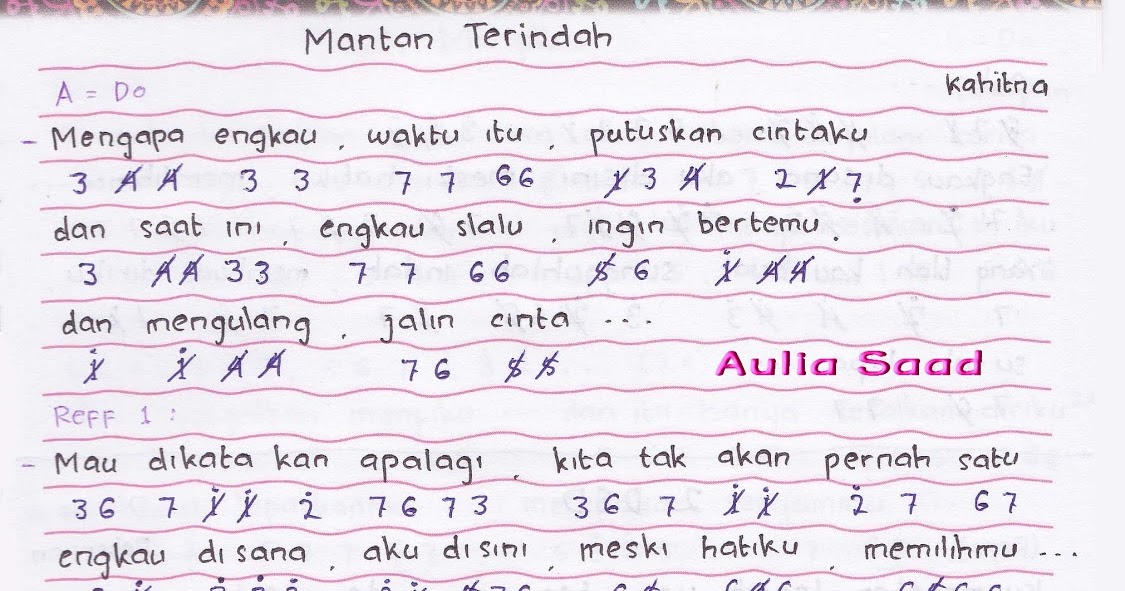 Mantan Terindah
A = Do
Kahitna
- Mengapa engkau, waktu itu, putuskan cintaku
3 4̸ 4̸ 3 3 7 7 6 6 1̸ 3 4̸ 2 1̸ 7̣
dan saat ini, engkau slalu, ingin bertemu,
3 4̸ 4̸ 3 3 7 7 6 6 5̸ 6 1̸̇ 4̸ 4̸
dan mengulang, jalin cinta ...
1̸̇ 1̸̇ 4̸ 4̸ 7 6 5̸ 5̸
Aulia Saad
Reff 1 :
- Mau dikata kan apalagi, kita tak akan pernah satu
3 6 7 1̸̇ 1̸̇ 2̇ 7 6 7 3 3 6 7 1̸̇ 1̸̇ 2̇ 7 6 7
engkau disana, aku disini, meski hatiku, memilihmu ...